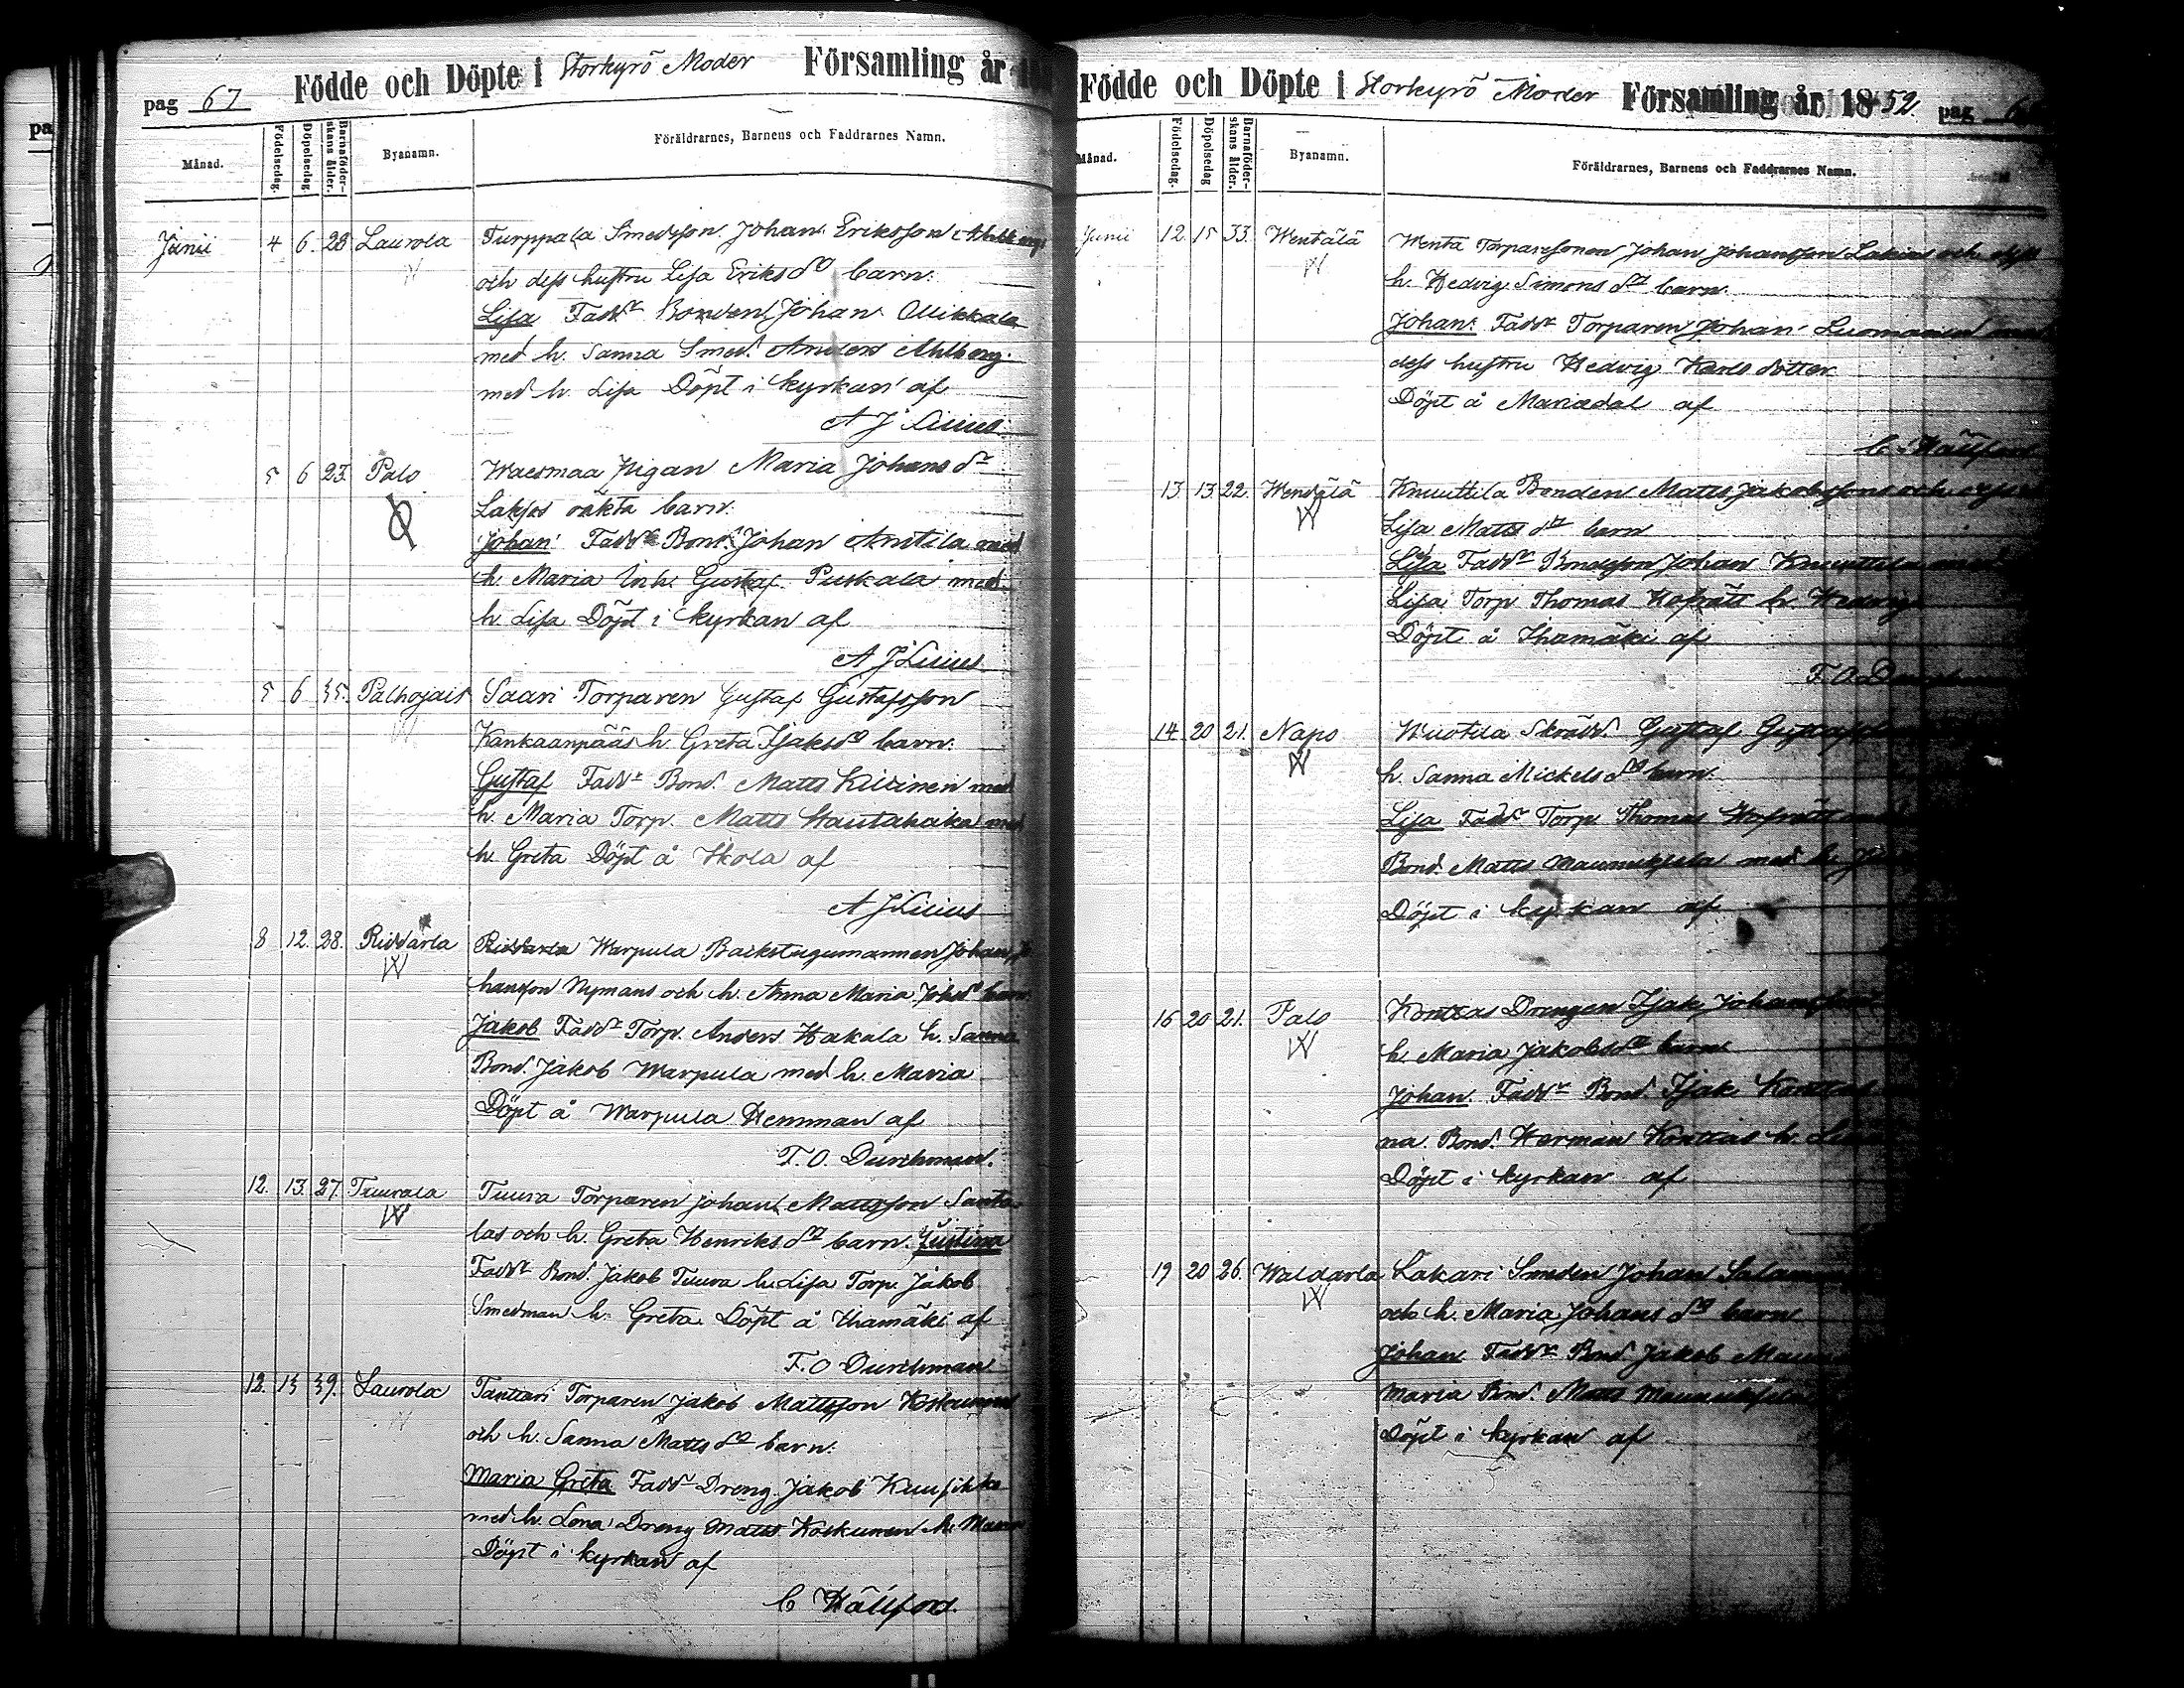 pag 67 Födde och Döpte i Storkyrö Moder Församling år 18
Månad. Födelsedag. Döpelsedag. Barnaföderskans ålder. Byanamn. Föräldrarnes, Barnens och Faddrarnes Namn.
Junii 4 6. 28 Laurola Turppala Smedsson Johan Eriksson
och dess hustru Lisa Eriksdr barn.
Lisa Faddr Bonden Johan Ollikkala
med h. Sanna Smed. Anders Ahlberg.
med h. Lisa Döpt i kyrkan af
A J Lilius.
5 6 23. Palo Waesmaa Pigan Maria Johans dr
oäkta barn.
Johan Faddr Bond. Johan Anttila med
h. Maria Inh. Gustaf Puskala med
h. Lisa Döpt i kyrkan af
A J Lilius
5 6 35. Palhojais Saari Torparen Gustaf Gustafsson
Kankaanpääs h. Greta Isaksdr barn.
Gustaf Faddr Bond. Matts Kiikinen med
h. Maria Torp. Matts Hautahaka med
h. Greta Döpt å Skola af
A J Lilius
8 12. 28. Riddarla Riddarla Warpula Backstugumannen Johan Jo
hansson Nymans och h. Anna Maria Johsdr barn.
Jakob Faddr Torp. Anders Hakala h. Sanna
Bond. Jakob Warpula med h. Maria
Döpt å Warpula Hemman af
F. O. Durchman.
12. 13. 27. Tuurala Tuura Torparen Johan Mattsson Santa
las och h. Greta Henriks dr barn. Justina
Faddr Bond. Jakob Tuura h. Lisa Torp. Jakob
Smedman h. Greta Döpt å Ihamäki af
F. O Durchman
12. 15 39. Laurola Tanttari Torparen Jakob Mattsson Koskunens
och h. Sanna Matts dr barn.
Maria Greta Faddr Dreng Jakob Kuusikko
med h. Lena Dreng Matts Koskunen h. Maria
Döpt i kyrkan af
C Hällfors.
Födde och Döpte i Storkyrö Moder Församling år 1852. pag 68
Månad. Födelsedag. Döpelsedag Barnaföderskans ålder. Byanamn. Föräldrarnes, Barnens och Faddrarnes Namn.
Junii 12. 15 33. Wentälä Wentä Torparesonen Johan Johansson och dess
h. Hedvig Simons dr barn.
Johan. Faddr Torparen Johan med
dess hustru Hedvig Karls dotter
Döpt å Mariedal af
C. Hällfors
13. 13. 22. Wentälä Knuuttila Bonden Matts Jakobssons och dess
Lisa Matts dr barn
Lisa Faddr Bondeson Johan Knuuttila med
Lisa Torp Thomas Hofrätt h. Hedvig
Döpt å Ihamäki af
F. O. Durchman
14. 20 21. Napo Skrädd. Gustaf
h. Sanna Mickels dr barn.
Lisa Faddr Torp Thomas Hofrätt
Bond. Matts Maunuksela med h.
Döpt i kyrkan af
16 20 21. Palo Kontsas Drengen Isak
h. Maria Jakobsdr barn
Johan. Faddr Bond. Isak
na. Bond. Herman Kontsas h.
Döpt i kyrkan af
19 20 26. Waldarla Lakari Smeden Johan
och h. Maria Johans dr barn
Johan Faddr Bond Jakob
Maria Bond. Matts Maunuksela
Döpt i kyrkan af